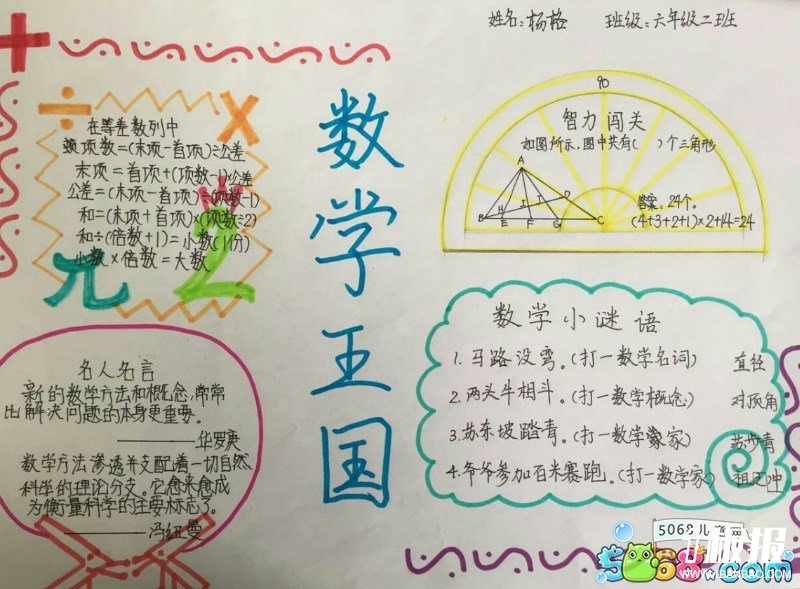 姓名:杨格 班级:六年级二班
数学王国
在等差数列中
项数=(末项-首项)÷公差
末项=首项+(项数-1)×公差
公差=(末项-首项)÷(项数-1)
和=(末项+首项)×(项数÷2)
和÷(倍数+1)=小数(1份)
小数×倍数=大数
π
2
90
智力闯关
如图所示,图中共有( )个三角形
A
B
H
E
I
F
J
G
D
C
答案:24个。
(4+3+2+1)×2+14=24
名人名言
新的数学方法和概念,常常
比解决问题的本身更重要。
———华罗庚
数学方法渗透并支配着一切自然
科学的理论分支。它愈来愈成
为衡量科学的主要标志了。
———冯纽曼
数学小谜语
1.马路没弯。(打一数学名词) 直径
2.两头牛相斗。(打一数学概念) 对顶角
3.苏东坡踏青。(打一数学家) 苏步青
4.爷爷参加百米赛跑。(打一数学家) 祖冲
5068儿童网
5068.com
板报